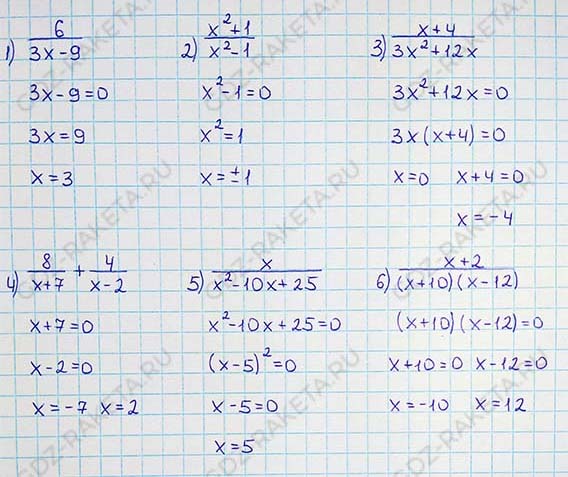 1) 6/(3x-9)
3x-9=0
3x=9
x=3
2) (x²+1)/(x²-1)
x²-1=0
x²=1
x=±1
3) (x+4)/(3x²+12x)
3x²+12x=0
3x(x+4)=0
x=0 x+4=0
x=-4
4) 8/(x+7) + 4/(x-2)
x+7=0
x-2=0
x=-7 x=2
5) x/(x²-10x+25)
x²-10x+25=0
(x-5)²=0
x-5=0
x=5
6) (x+2)/((x+10)(x-12))
(x+10)(x-12)=0
x+10=0 x-12=0
x=-10 x=12
GDZ-RAKETA.RU